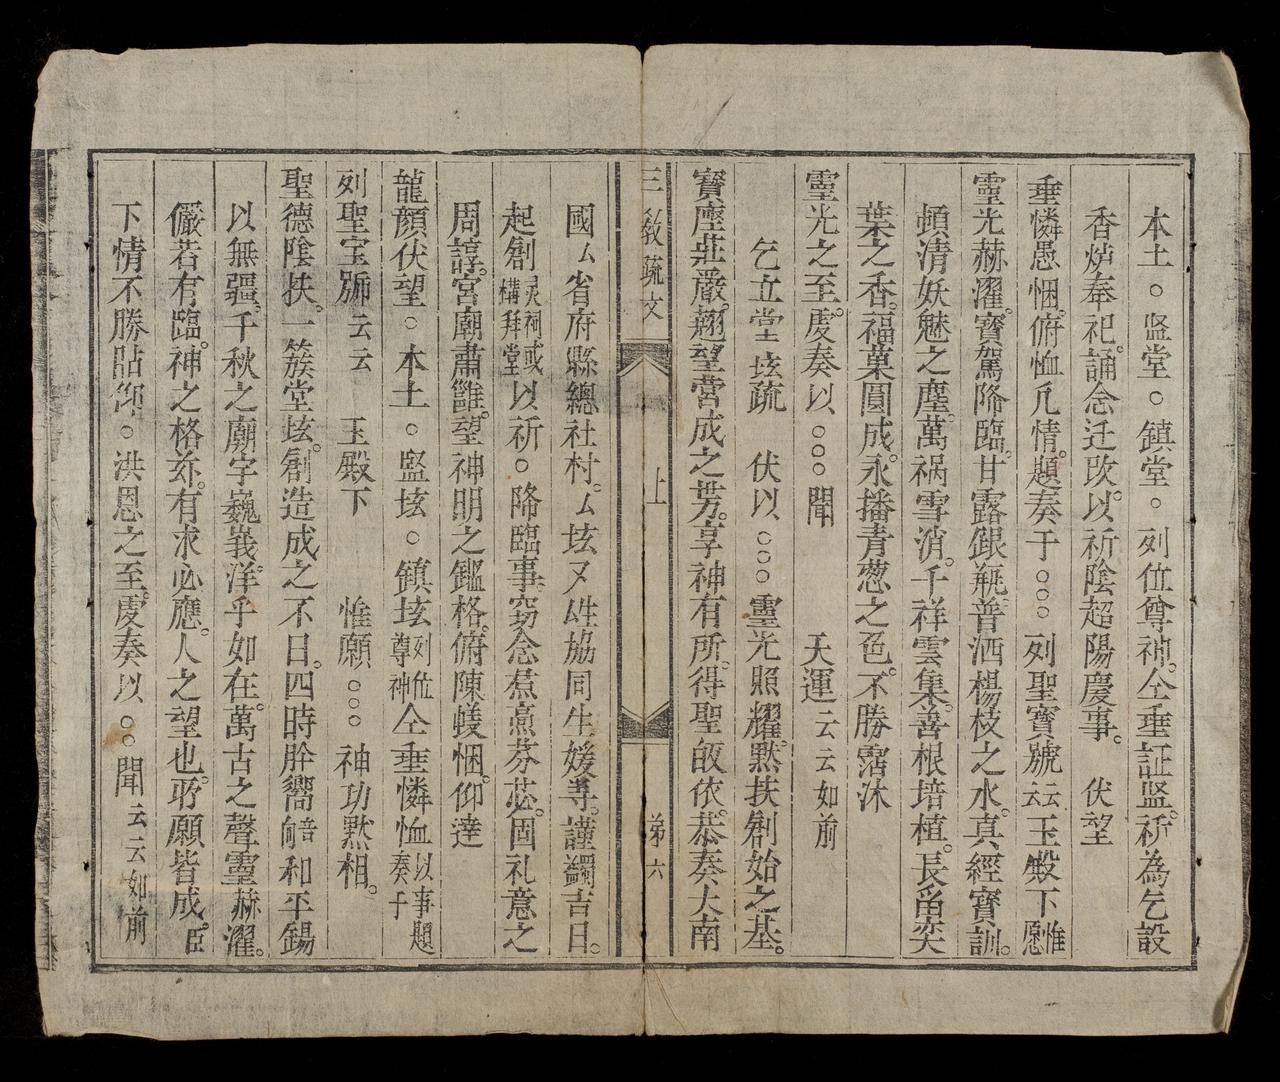 本土○監堂○鎮堂○列位尊神。仝垂証監。祈為乞設
香炉奉祀。誦念迁改。以祈陰超陽慶事。伏望
垂憐愚悃。俯恤凡情。題奏于○○○列聖寳號云云玉殿下惟愿
靈光赫濯。寳駕降臨。甘露銀瓶。普洒楊枝之水。真經寳訓。
頓清妖魅之塵。萬禍雪消。千祥雲集。善根培植。長留奕
葉之香。福菓圓成。永播青葱之色。不勝霑沐
靈光之至。虔奏以○○○聞 天運云云如前
乞立堂垓疏 伏以○○○靈光照耀。默扶創始之基。
寳座莊嚴。翹望营成之芳。享神有所。得聖攸依。恭奏大南
三教疏文 上 第六
國厶省府縣總社村。厶垓又牲協同生媛等。謹蠲吉日。
起創灵祠或構拜堂以祈○降臨事。窃念焄燕芬苾。固礼意之
周諄。宮廟肅雝。望神明之鑑格。俯陳蟻悃。仰達
龍顔伏望○本土○監垓○鎮垓列位尊神仝垂憐恤以事題奏于
列聖宝號云云 玉殿下 惟願○○○神功默相。
聖德陰扶。一簇堂垓。創造成之不日。四時肸嚮音備和平錫
以無疆。千秋之廟宇巍峩。洋乎如在。萬古之聲靈赫濯。
儼若有臨。神之格亦。有求必應。人之望也。所願皆成。臣
下情不勝貼仰○洪恩之至。虔奏以○○○聞云云如前